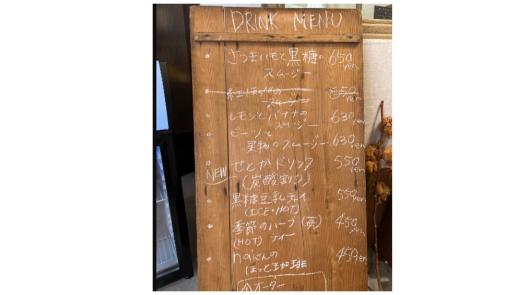 DRINK MENU
さつまいもと黒糖の 650yen
スムージー
スムージー
レモンとバナナの 630yen
スムージー
ビーツと
果物のスムージー 630yen
NEW せとかドリンク 550yen
(炭酸割り)
黒糖豆乳チャイ 550yen
(ICE・HOT)
季節のハーブ 450yen
(HOT) ティー
450yen
ほっと珈琲
オーダー